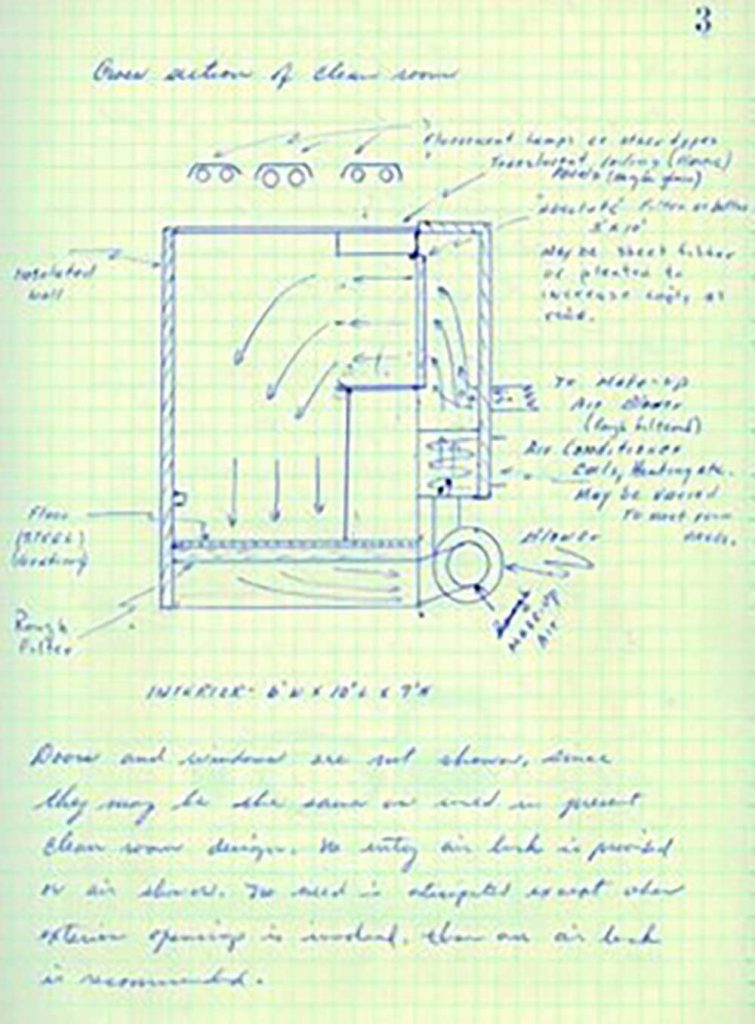 3
Cross section of clean room
Fluorescent lamps or other types
Translucent ceiling
"Absolute" filter
3' x 10'
May be sheet filter
or pleated to
increase
Insulated
wall
To Make-up
Air Blower
(rough filtered)
Air Conditioner
Coils, Heating etc.
May be varied
to meet
needs.
Floor
(STEEL)
(Grating)
Blower
Make-up
Air
Rough
Filter
INTERIOR - 6'W x 10'L x 7'H
Doors and windows are not shown, since
they may be the same as used in present
clean room design. No entry air lock is provided
or air shower. No need is except when
exterior openings is involved, then an air lock
is recommended.